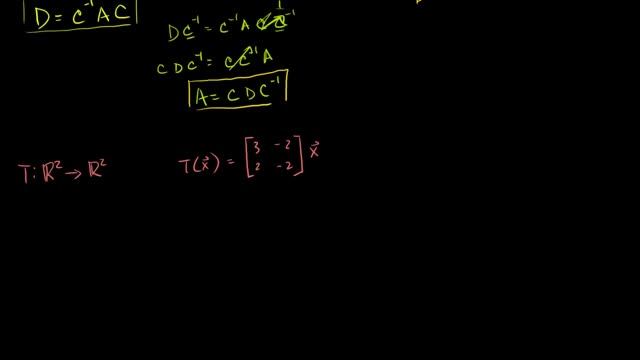 D = C⁻¹AC
DC⁻¹ = C⁻¹A C C⁻¹
CDC⁻¹ = CC⁻¹A
A = CDC⁻¹
T: ℝ² → ℝ² T(x⃗) = [3 -2; 2 -2] x⃗